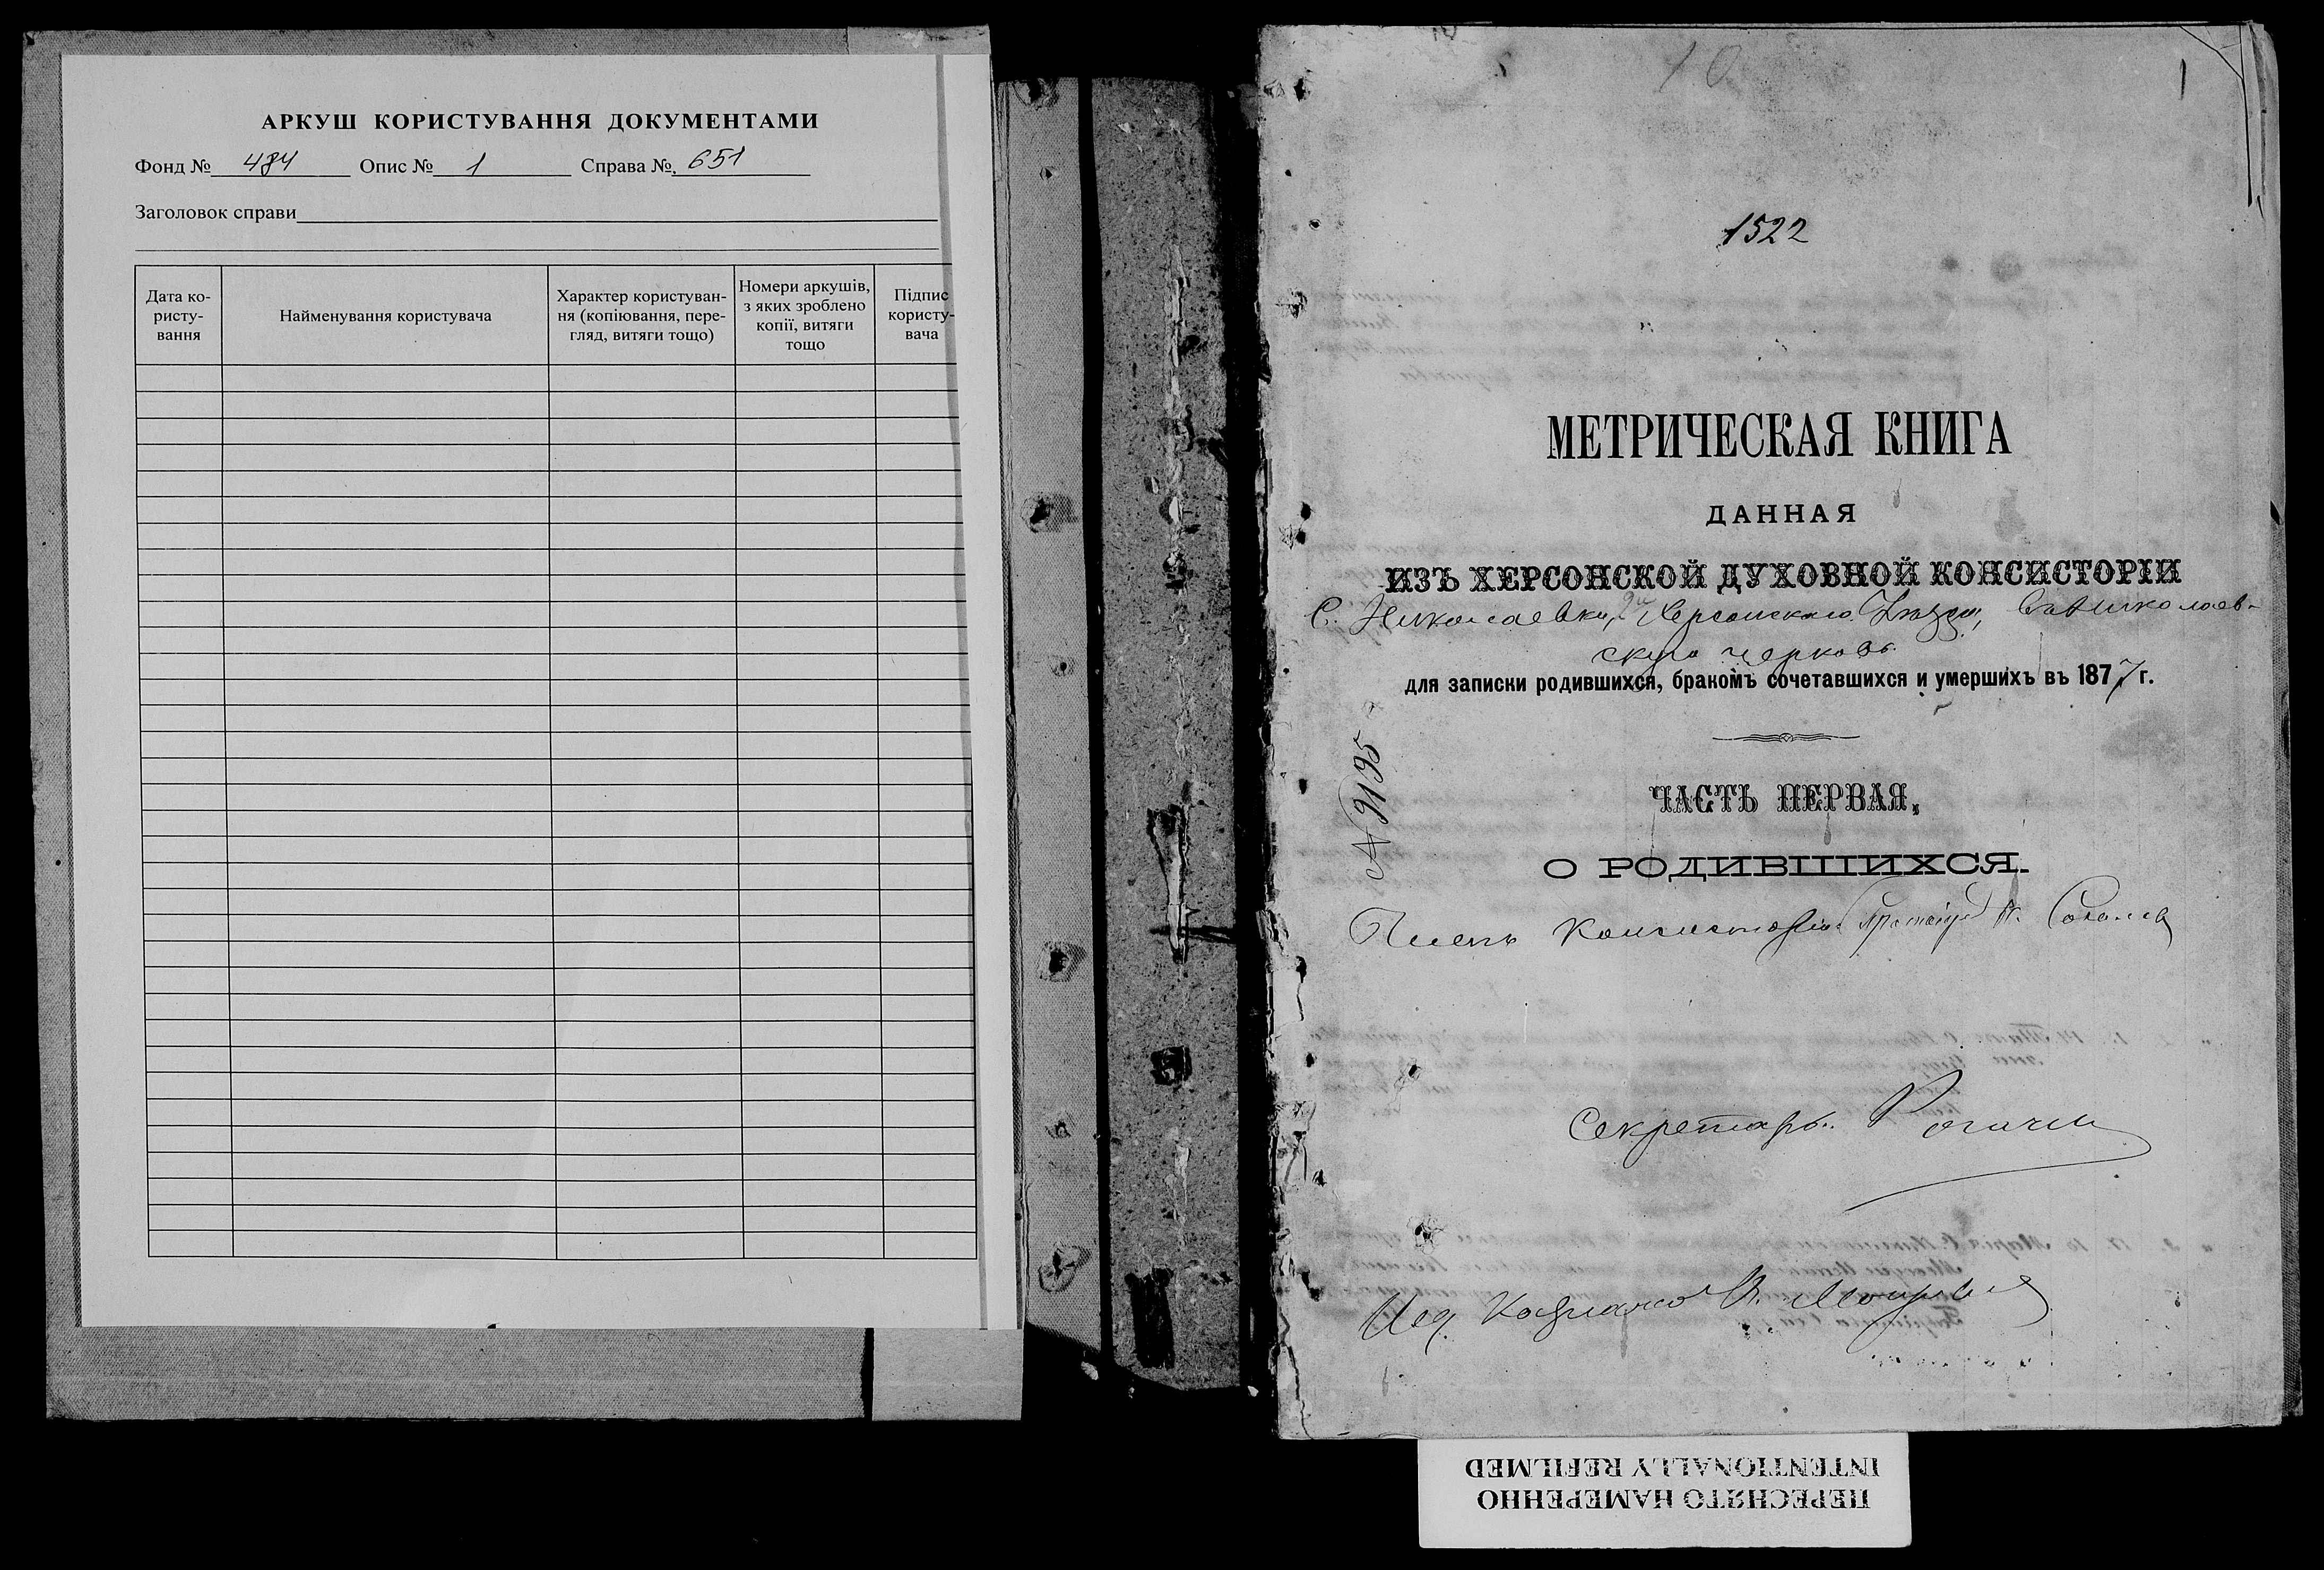 АРКУШ КОРИСТУВАННЯ ДОКУМЕНТАМИ
Фонд № 484 Опис № 1 Справа № 651
Заголовок справи
Дата ко-
ристу-
вання
Найменування користувача
Характер користуван-
ня (копіювання, пере-
гляд, витяги тощо)
Номери аркушів,
з яких зроблено
копії, витяги
тощо
Підпис
користу-
вача
10
1
1522
МЕТРИЧЕСКАЯ КНИГА
ДАННАЯ
ИЗЪ ХЕРСОНСКОЙ ДУХОВНОЙ КОНСИСТОРІИ
С. Николаевки, Херсонскаго Уѣзда, Св. Николаев-
скую церковь
для записки родившихся, бракомъ сочетавшихся и умершихъ въ 1877 г.
№ 9195
ЧАСТЬ ПЕРВАЯ,
О РОДИВШИХСЯ.
Членъ Консисторіи
Секретарь
ПЕРЕСНЯТО НАМЕРЕННО
INTENTIONALLY REFILMED